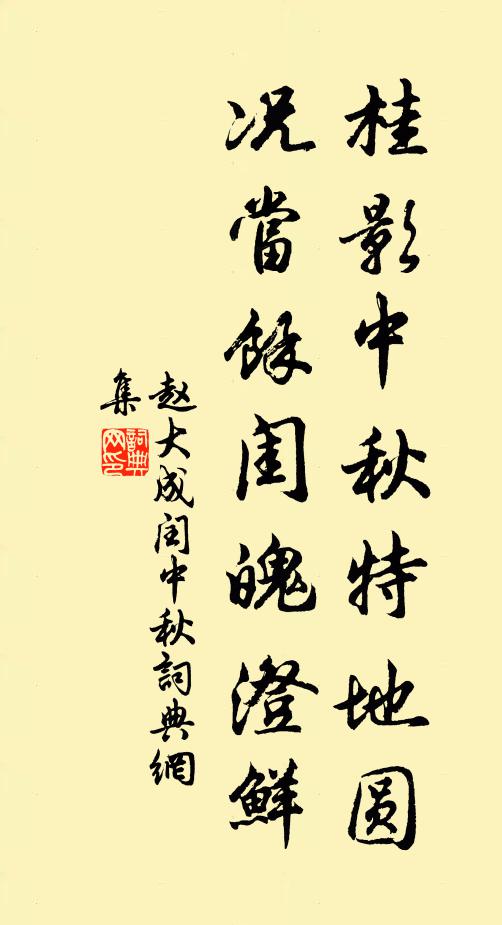 桂影中秋特地圆
况當餘闰魄澄鮮
赵大成闰中秋詞典網
集
詞典
网印